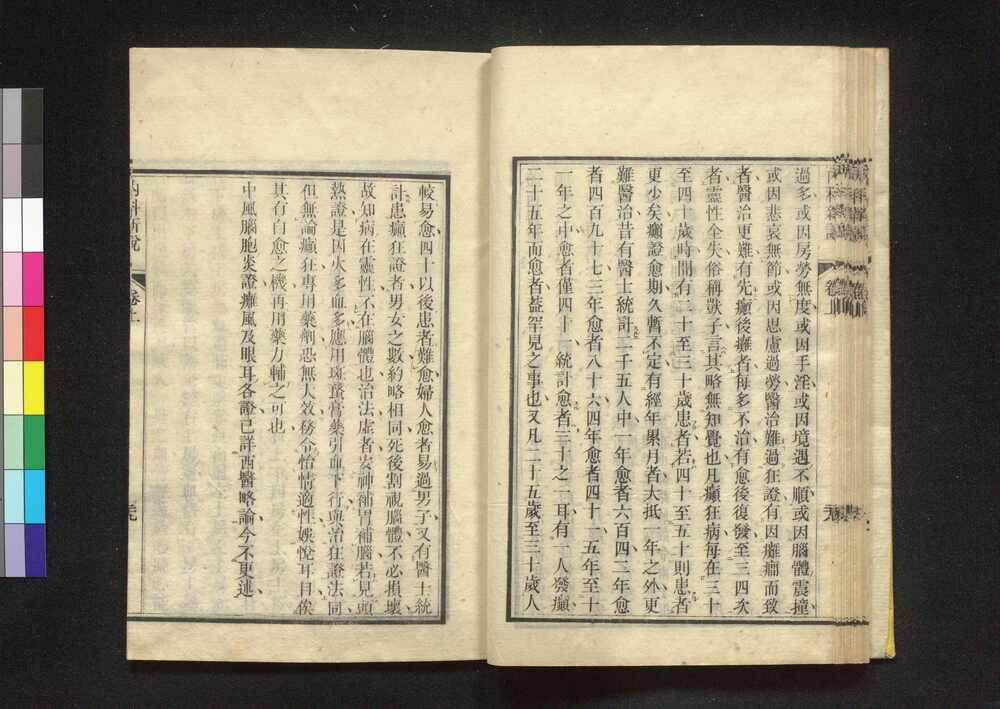 過多或因房勞無度或因手淫或因境遇不順或因腦體震撞
或因悲哀無節或因思慮過勞醫治難過狂證有因癱癇而致
者醫治更難有先癲後癱者每多不治有愈後復發至三四次
者靈性全失俗稱獃子言其略無知覺也凡癲狂病每在三十
至四十歲時間有二十至三十歲患者若四十至五十則患者
更少矣癲證愈期久暫不定有經年累月者大抵一年之外更
難醫治昔有醫士統計二千五人中一年愈者六百四二年愈
者四百九十七三年愈者八十六四年愈者四十一二五年至十
一年之中愈者僅四十一統計愈者三十之一耳有一人發癲
二十五年而愈者蓋罕見之事也又凡二十五歲至三十歲人
較易愈四十以後患者難愈婦人愈者易過男子又有醫士統
計患癲狂證者男女之數約略相同死後割視腦體不必損壞
故知病在靈性不在腦體也治法虛者安神補胃補腦若見頭
熱證是因火多血多應用斑蝥膏藥引血下行與治狂證法同
但無論癲狂專用藥劑恐無大效務令怡情適性娛悅耳目俟
其有自愈之機再用藥力輔之可也
中風腦胞炎證癱風及眼耳各證已詳西醫略論今不更述
內科新說
卷上